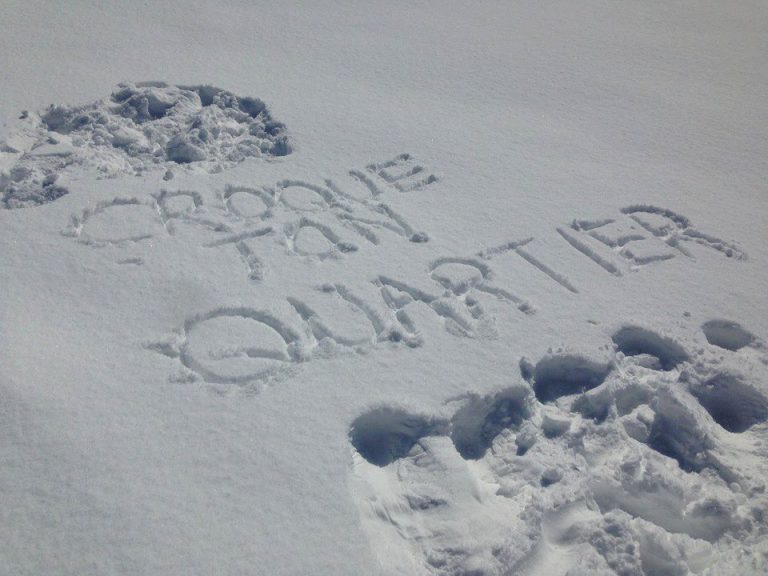 CROQUE
TON
QUARTIER